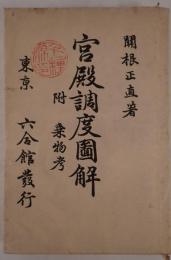 関根正直著
宮殿調度圖解
附 乗物考
東京 六合館發行